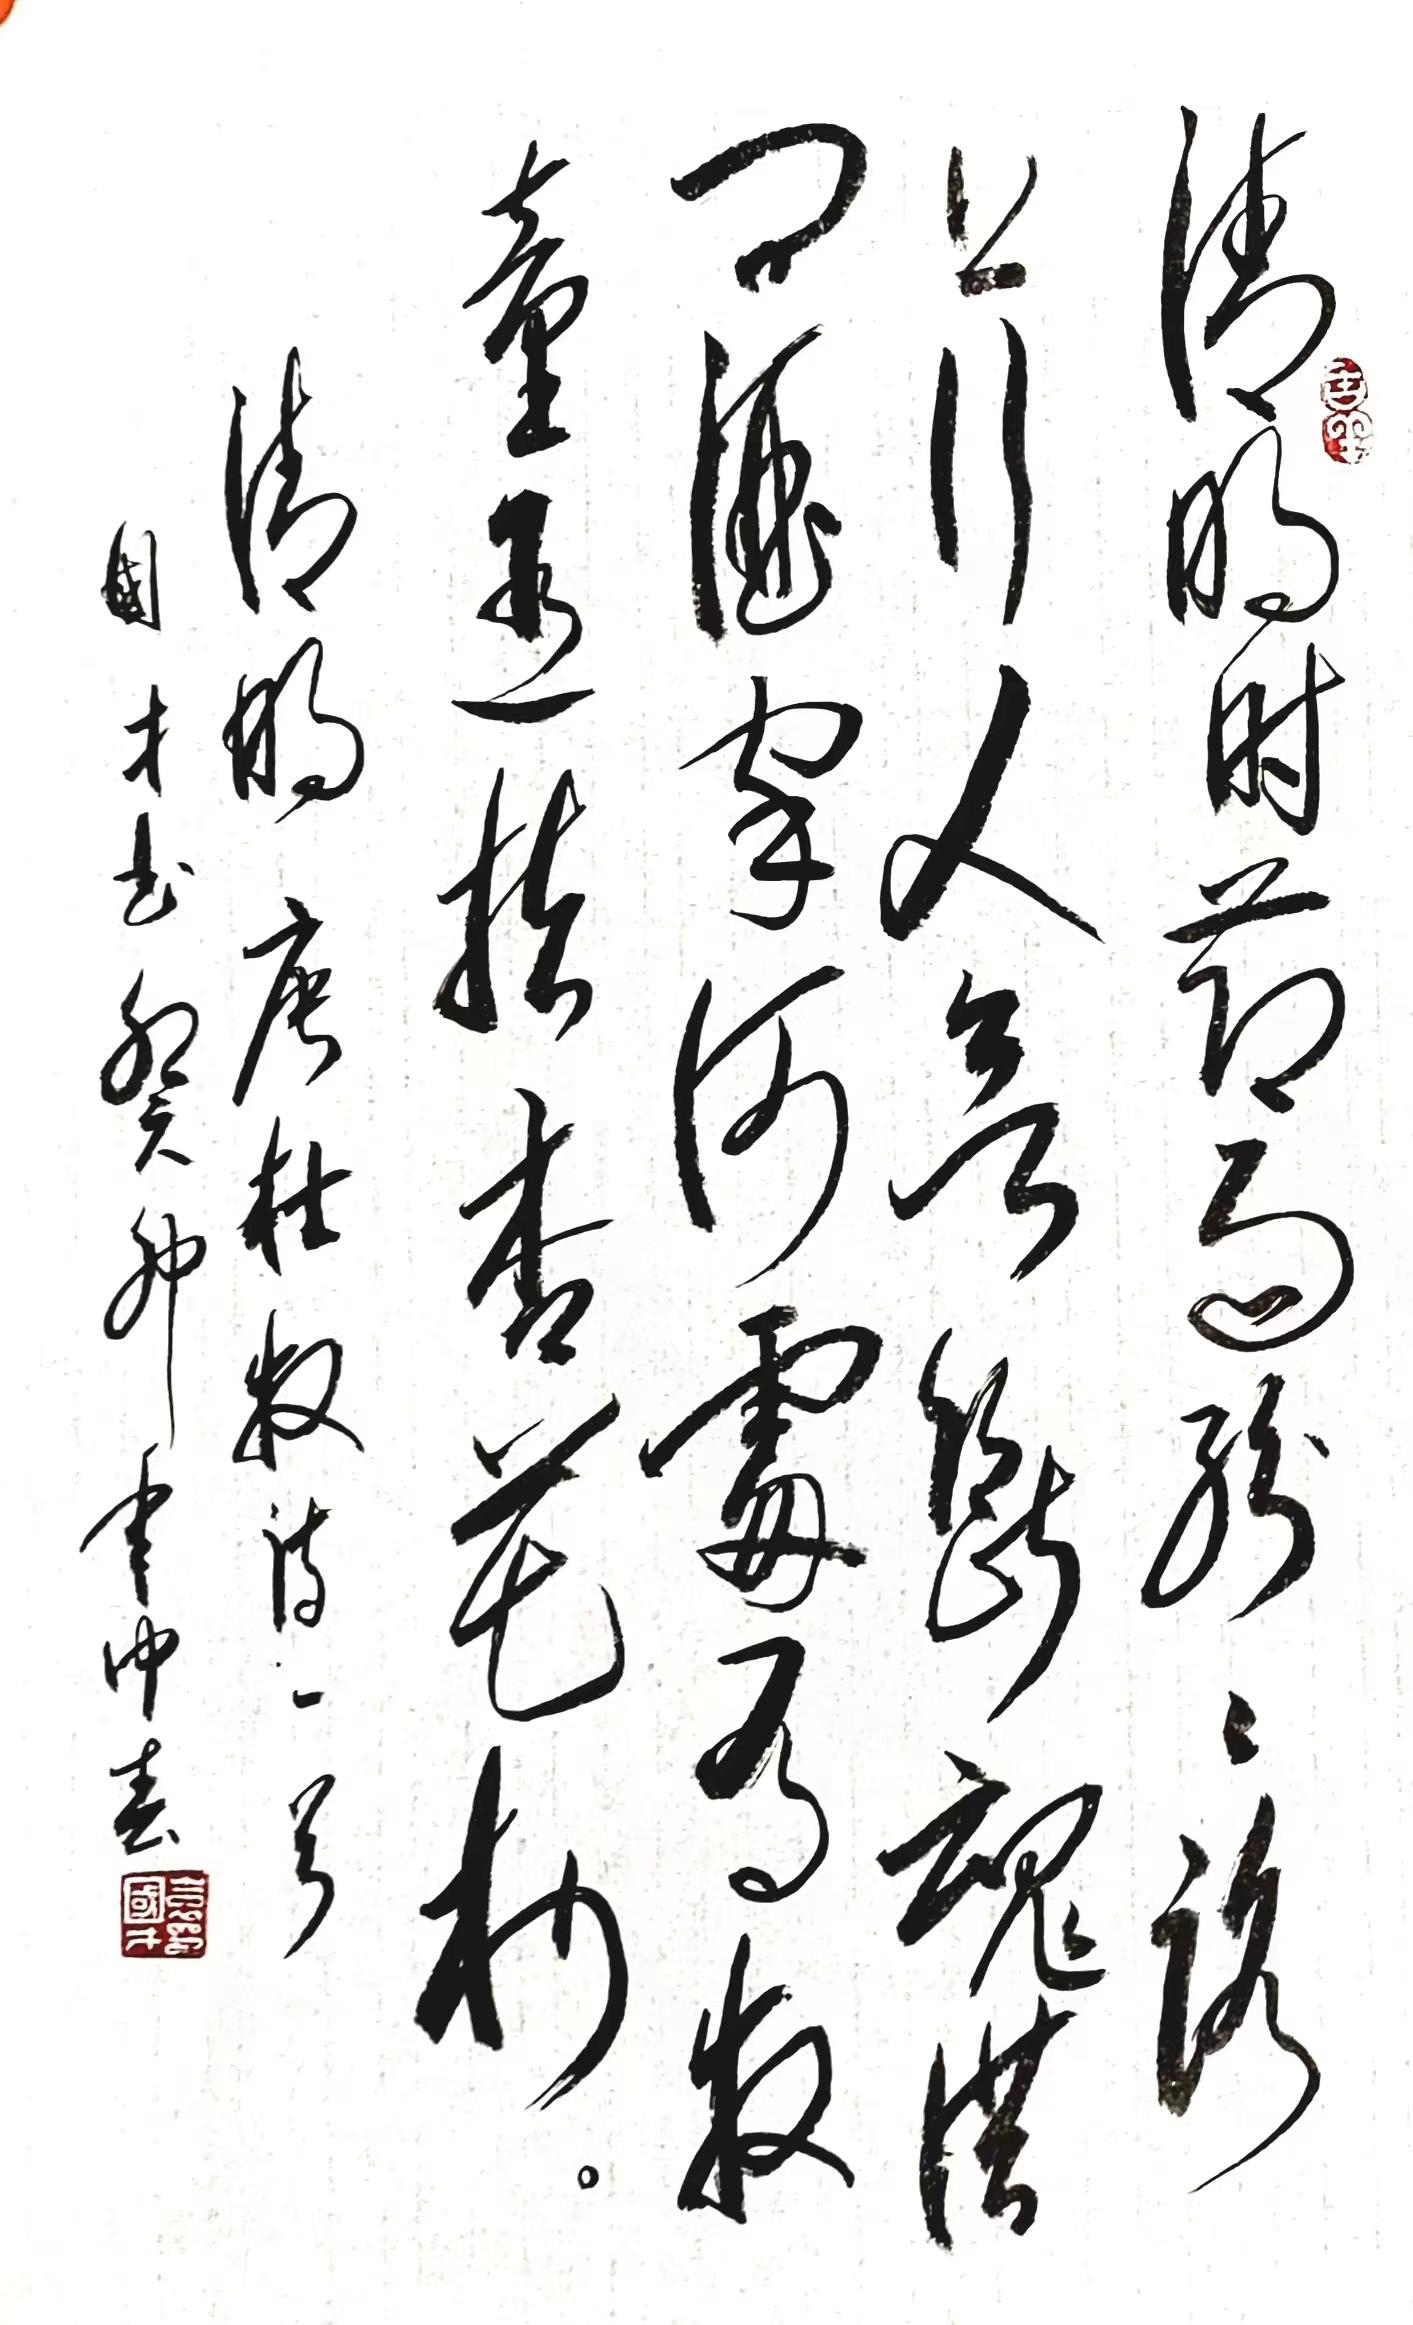 清明时节雨纷々路
上行人欲断魂借
问酒家何處有牧
童遥指杏花村。
清明 唐杜牧诗一首
國才书癸卯年仲春
國才